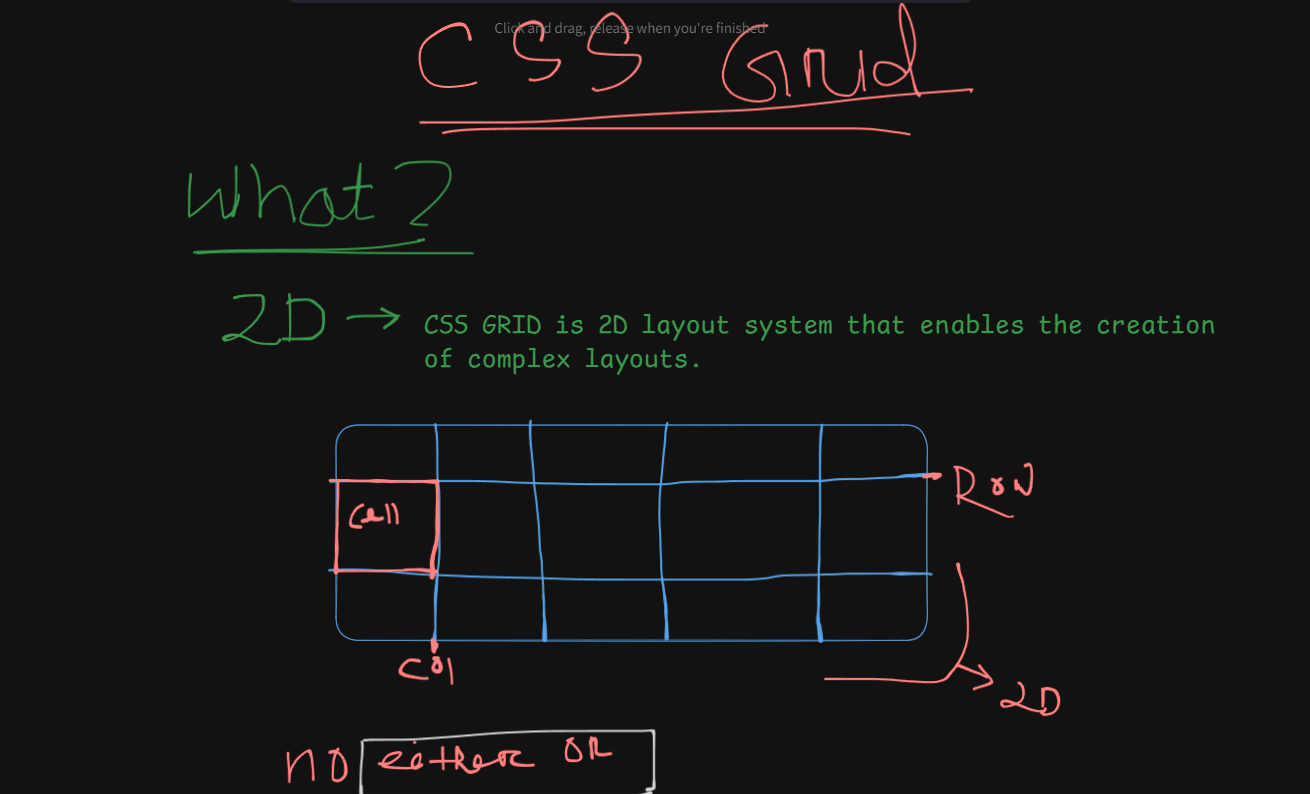 Click and drag, release when you're finished
CSS Grid
What?
2D → CSS GRID is 2D layout system that enables the creation
of complex layouts.
Row
Cell
Col
2D
no either or